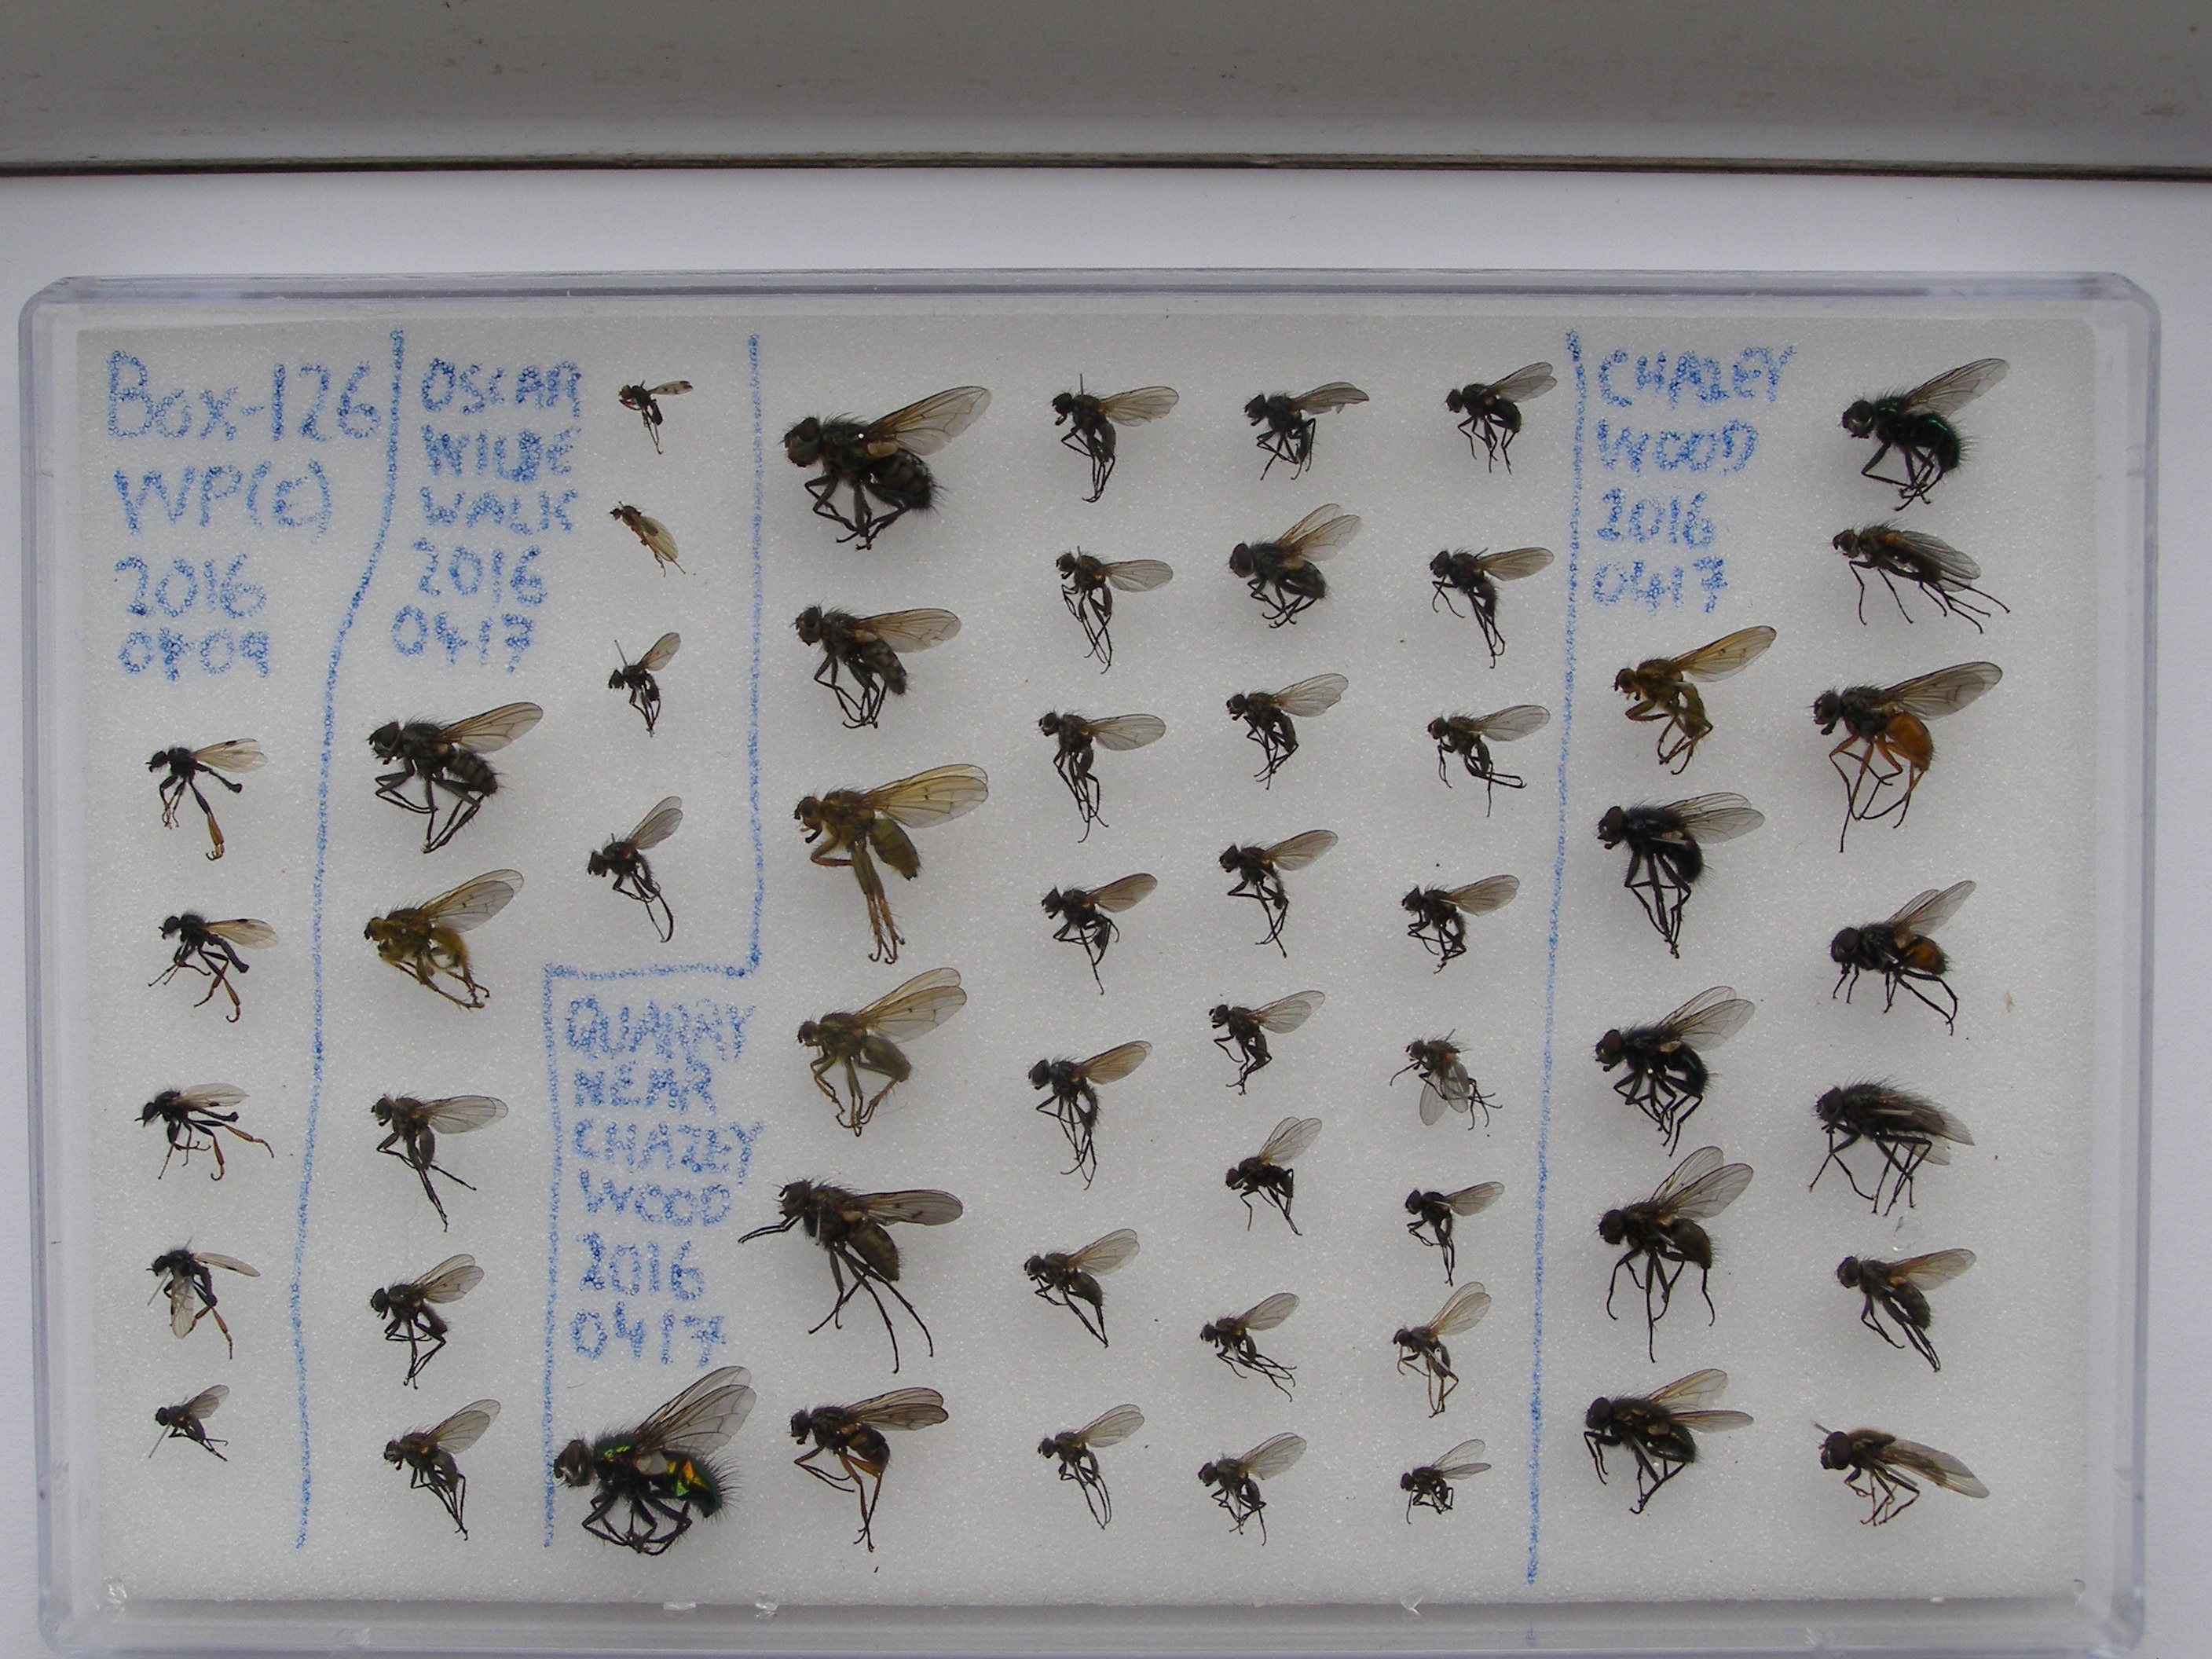 Box-126
WP(E)
2016
04-09
OSCAR
WILDE
WALK
2016
04-17
QUARRY
NEAR
CHAZEY
WOOD
2016
04-17
CHAZEY
WOOD
2016
04-17